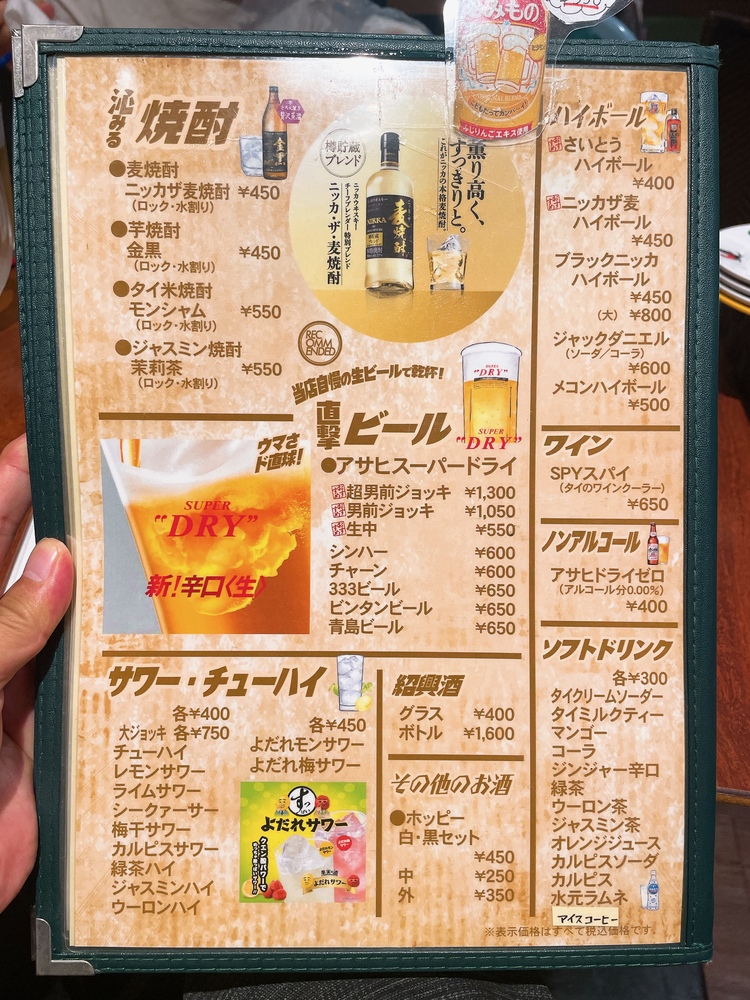 沁みる 焼酎
●麦焼酎
ニッカザ麦焼酎 ¥450
(ロック・水割り)
●芋焼酎
金黒 ¥450
(ロック・水割り)
●タイ米焼酎
モンシャム ¥550
(ロック・水割り)
●ジャスミン焼酎
茉莉花 ¥550
(ロック・水割り)
樽貯蔵
ブレンド
ニッカウヰスキー
チーフブレンダー特別ブレンド
ニッカ・ザ・麦焼酎
NIKKA
麦焼酎
薫り高く、
すっきりと。
これがニッカの本格麦焼酎。
RECOMMENDED
みもの
こどもだってカンパーイ!
ふじりんごエキス使用
当店自慢の生ビールで乾杯!
直撃 ビール
SUPER
"DRY"
SUPER
"DRY"
●アサヒスーパードライ
超男前ジョッキ ¥1,300
男前ジョッキ ¥1,050
生中 ¥550
シンハー ¥600
チャーン ¥600
333ビール ¥650
ビンタンビール ¥650
青島ビール ¥650
ウマさ
ド直球!
SUPER
"DRY"
新!辛口〈生〉
ハイボール
さいとう
ハイボール
¥400
ニッカザ麦
ハイボール
¥450
ブラックニッカ
ハイボール
¥450
(大) ¥800
ジャックダニエル
(ソーダ/コーラ)
¥600
メコンハイボール
¥500
ワイン
SPYスパイ
(タイのワインクーラー)
¥650
ノンアルコール
アサヒドライゼロ
(アルコール分0.00%)
¥400
ソフトドリンク
各¥300
タイクリームソーダー
タイミルクティー
マンゴー
コーラ
ジンジャー辛口
緑茶
ウーロン茶
ジャスミン茶
オレンジジュース
カルピスソーダ
カルピス
水元ラムネ
アイスコーヒー
サワー・チューハイ
各¥400
大ジョッキ 各¥750
チューハイ
レモンサワー
ライムサワー
シークァーサー
梅干サワー
カルピスサワー
緑茶ハイ
ジャスミンハイ
ウーロンハイ
各¥450
よだれモンサワー
よだれ梅サワー
よだれサワー
クエン酸パワーで
よだれサワー
紹興酒
グラス ¥400
ボトル ¥1,600
その他のお酒
●ホッピー
白・黒セット
¥450
中 ¥250
外 ¥350
※表示価格はすべて税込価格です。